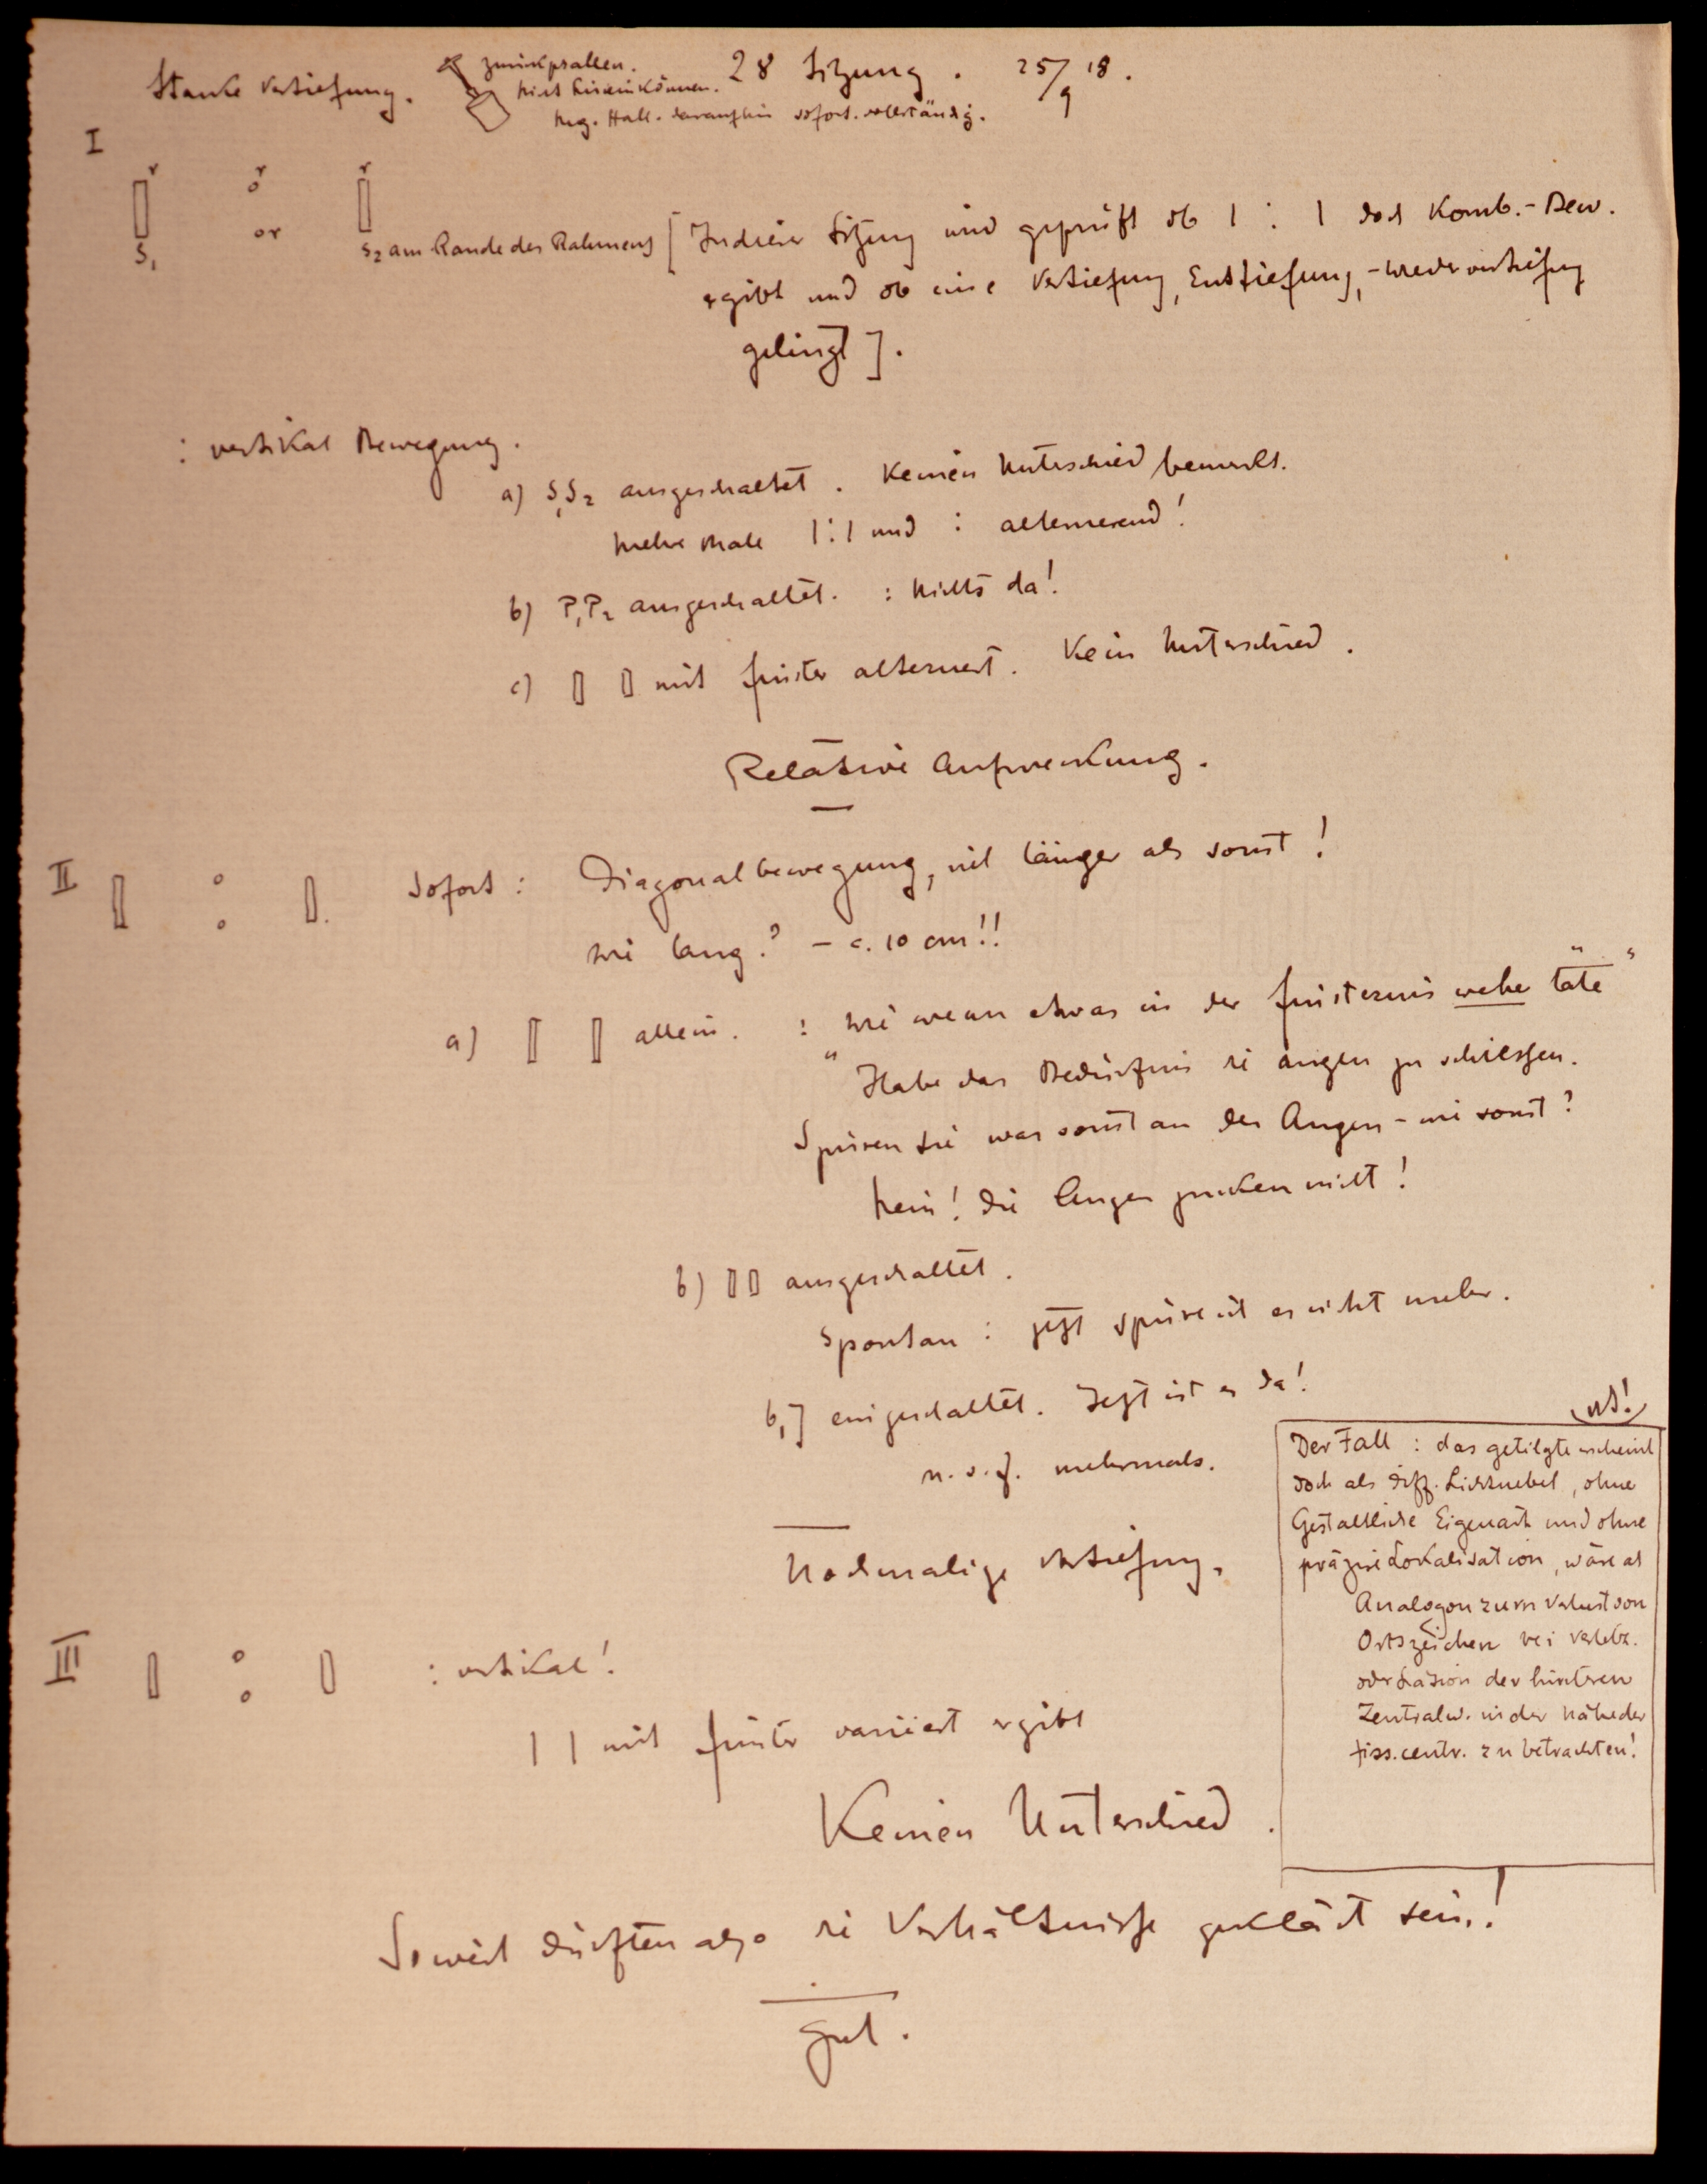 Starke Vertiefung.
zurückprallen.
nicht hineinkönnen.
neg. Hall. daraufhin sofort. vollständig.
28 Sitzung. 25/9 18.
I
r r r
S₁ or S₂ am Rande des Rahmens
[In dieser Sitzung wird geprüft ob | : | doch Komb.-Bew.
ergibt und ob eine Vertiefung, Enttiefung, - Wiedervertiefung
gelingt].
: vertikal Bewegung.
a) S₁S₂ ausgeschaltet. Keinen Unterschied bemerkt.
Mehre Male |:| und : alternierend!
b) P₁P₂ ausgeschaltet. : Nichts da!
c) ▯ ▯ mit finster alterniert. Kein Unterschied.
Relative Aufweckung.
II ▯ : ▯. Sofort: Diagonalbewegung, viel länger als sonst!
Wie lang? - c. 10 cm!!
a) ▯ ▯ allein. : Wie wenn etwas in der Finsternis wehe täte"
"Habe das Bedürfnis die Augen zu schliessen.
Spüren Sie was sonst an den Augen - wie sonst?
Nein! Die Augen zucken nicht!
b) ▯▯ ausgeschaltet.
Spontan: jetzt spüre ich es nicht mehr.
b₁] eingeschaltet. Jetzt ist es da!
u.s.f. mehrmals.
Nochmalige Vertiefung.
III ▯ : ▯ : vertikal!
| | mit finster variiert ergibt
Keinen Unterschied.
Soweit dürften also die Verhältnisse geklärt sein!
Gut.
Der Fall: das getilgte erscheint
doch als diff. Lichtnebel, ohne
Gestaltliche Eigenart und ohne
präzise Lokalisation, wäre als
Analogon zum Verlust von
Ortszeichen bei Verletz.
oder der hinteren
Zentralw. in der Nähe der
fiss. centr. zu betrachten!